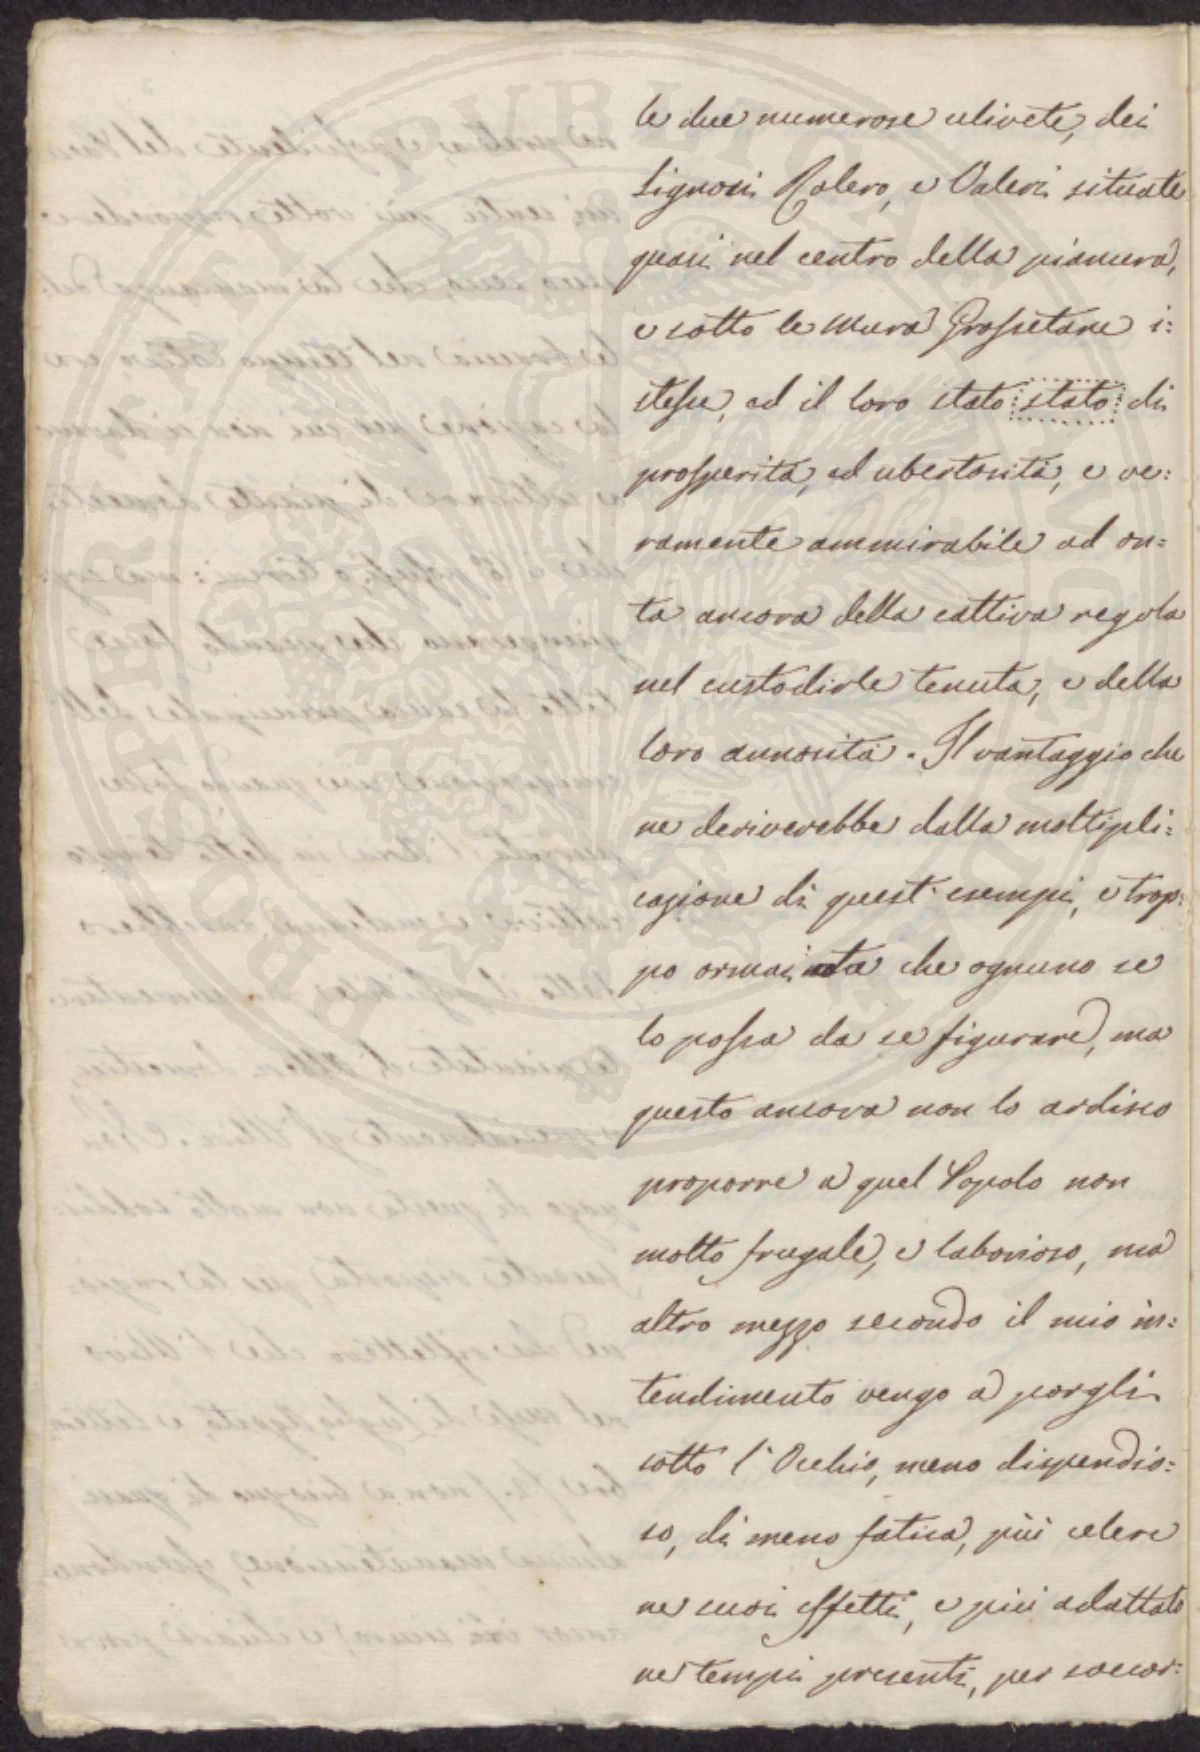 le due numerose ulivete, dei
Signori Rolero, e Valeri situate
quasi nel centro della pianura,
e sotto le Mura Grossetane i=
stesse, ed il loro stato stato di
prosperità, ed ubertosità, e ve=
ramente ammirabile ad on=
ta ancora della cattiva regola
nel custodirle tenuta, e della
loro annosità. Il vantaggio che
ne deriverebbe dalla moltipli=
cazione di questi esempi, e trop=
po ormai che ognuno se
lo possa da se figurare, ma
questo ancora non lo ardisco
proporre a quel Popolo non
molto frugale, e laborioso, ma
altro mezzo secondo il mio in=
tendimento vengo a porgli
sotto l'Occhio, meno dispendio=
so, di meno fatica, più celere
ne suoi effetti, e più adattato
ne tempi presenti, per soccor=